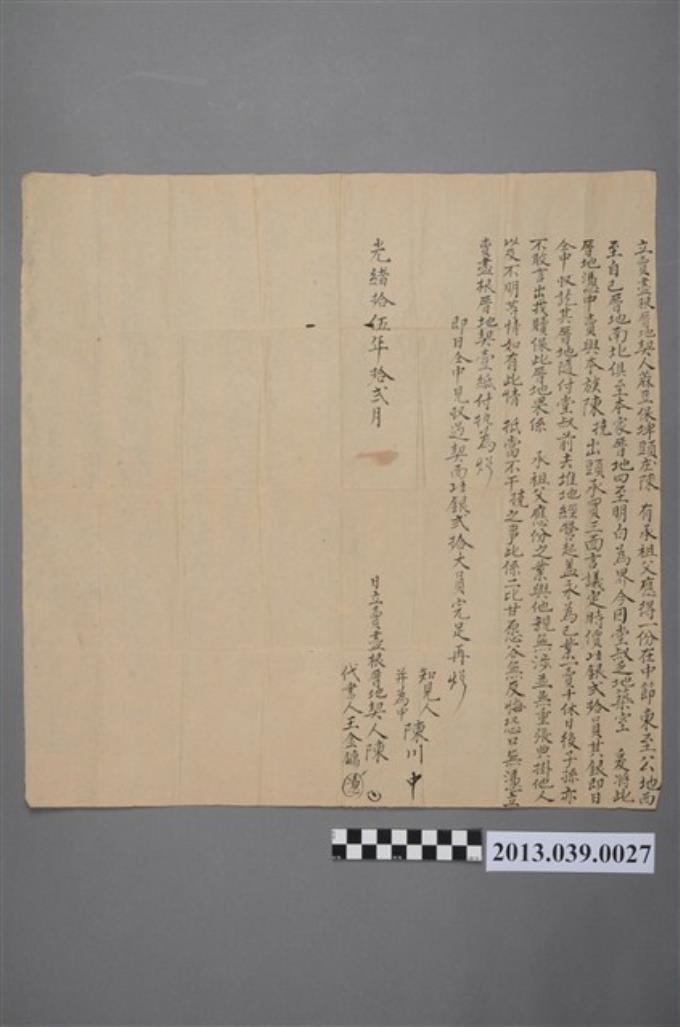 立賣盡根厝地契人蔴荳保埤頭庄陳 有承祖父應得一份在中節東至公地西
至自己厝地南北俱至本家厝地四至明白為界今因堂叔乏地築室 爰將此
厝地憑中賣與本族陳 出頭承買三面言議定時價銀弍拾員其銀即日
仝中收訖其厝地隨付堂叔前去堆地經營起蓋永為己業一賣千休日後子孫亦
不敢言出找贖保此厝地果係 承祖父應份之業與他親無涉並無重張典掛他人
以及不明等情如有此情 抵當不干 之事此係二比甘愿各無反悔恐口無憑立
賣盡根厝地契壹紙付執為炤
即日仝中見収過契面銀弍拾大員完足再炤
光緒拾伍年拾弍月
日立賣盡根厝地契人陳
知見人
并為中 陳川中
代書人王金
2013.039.0027